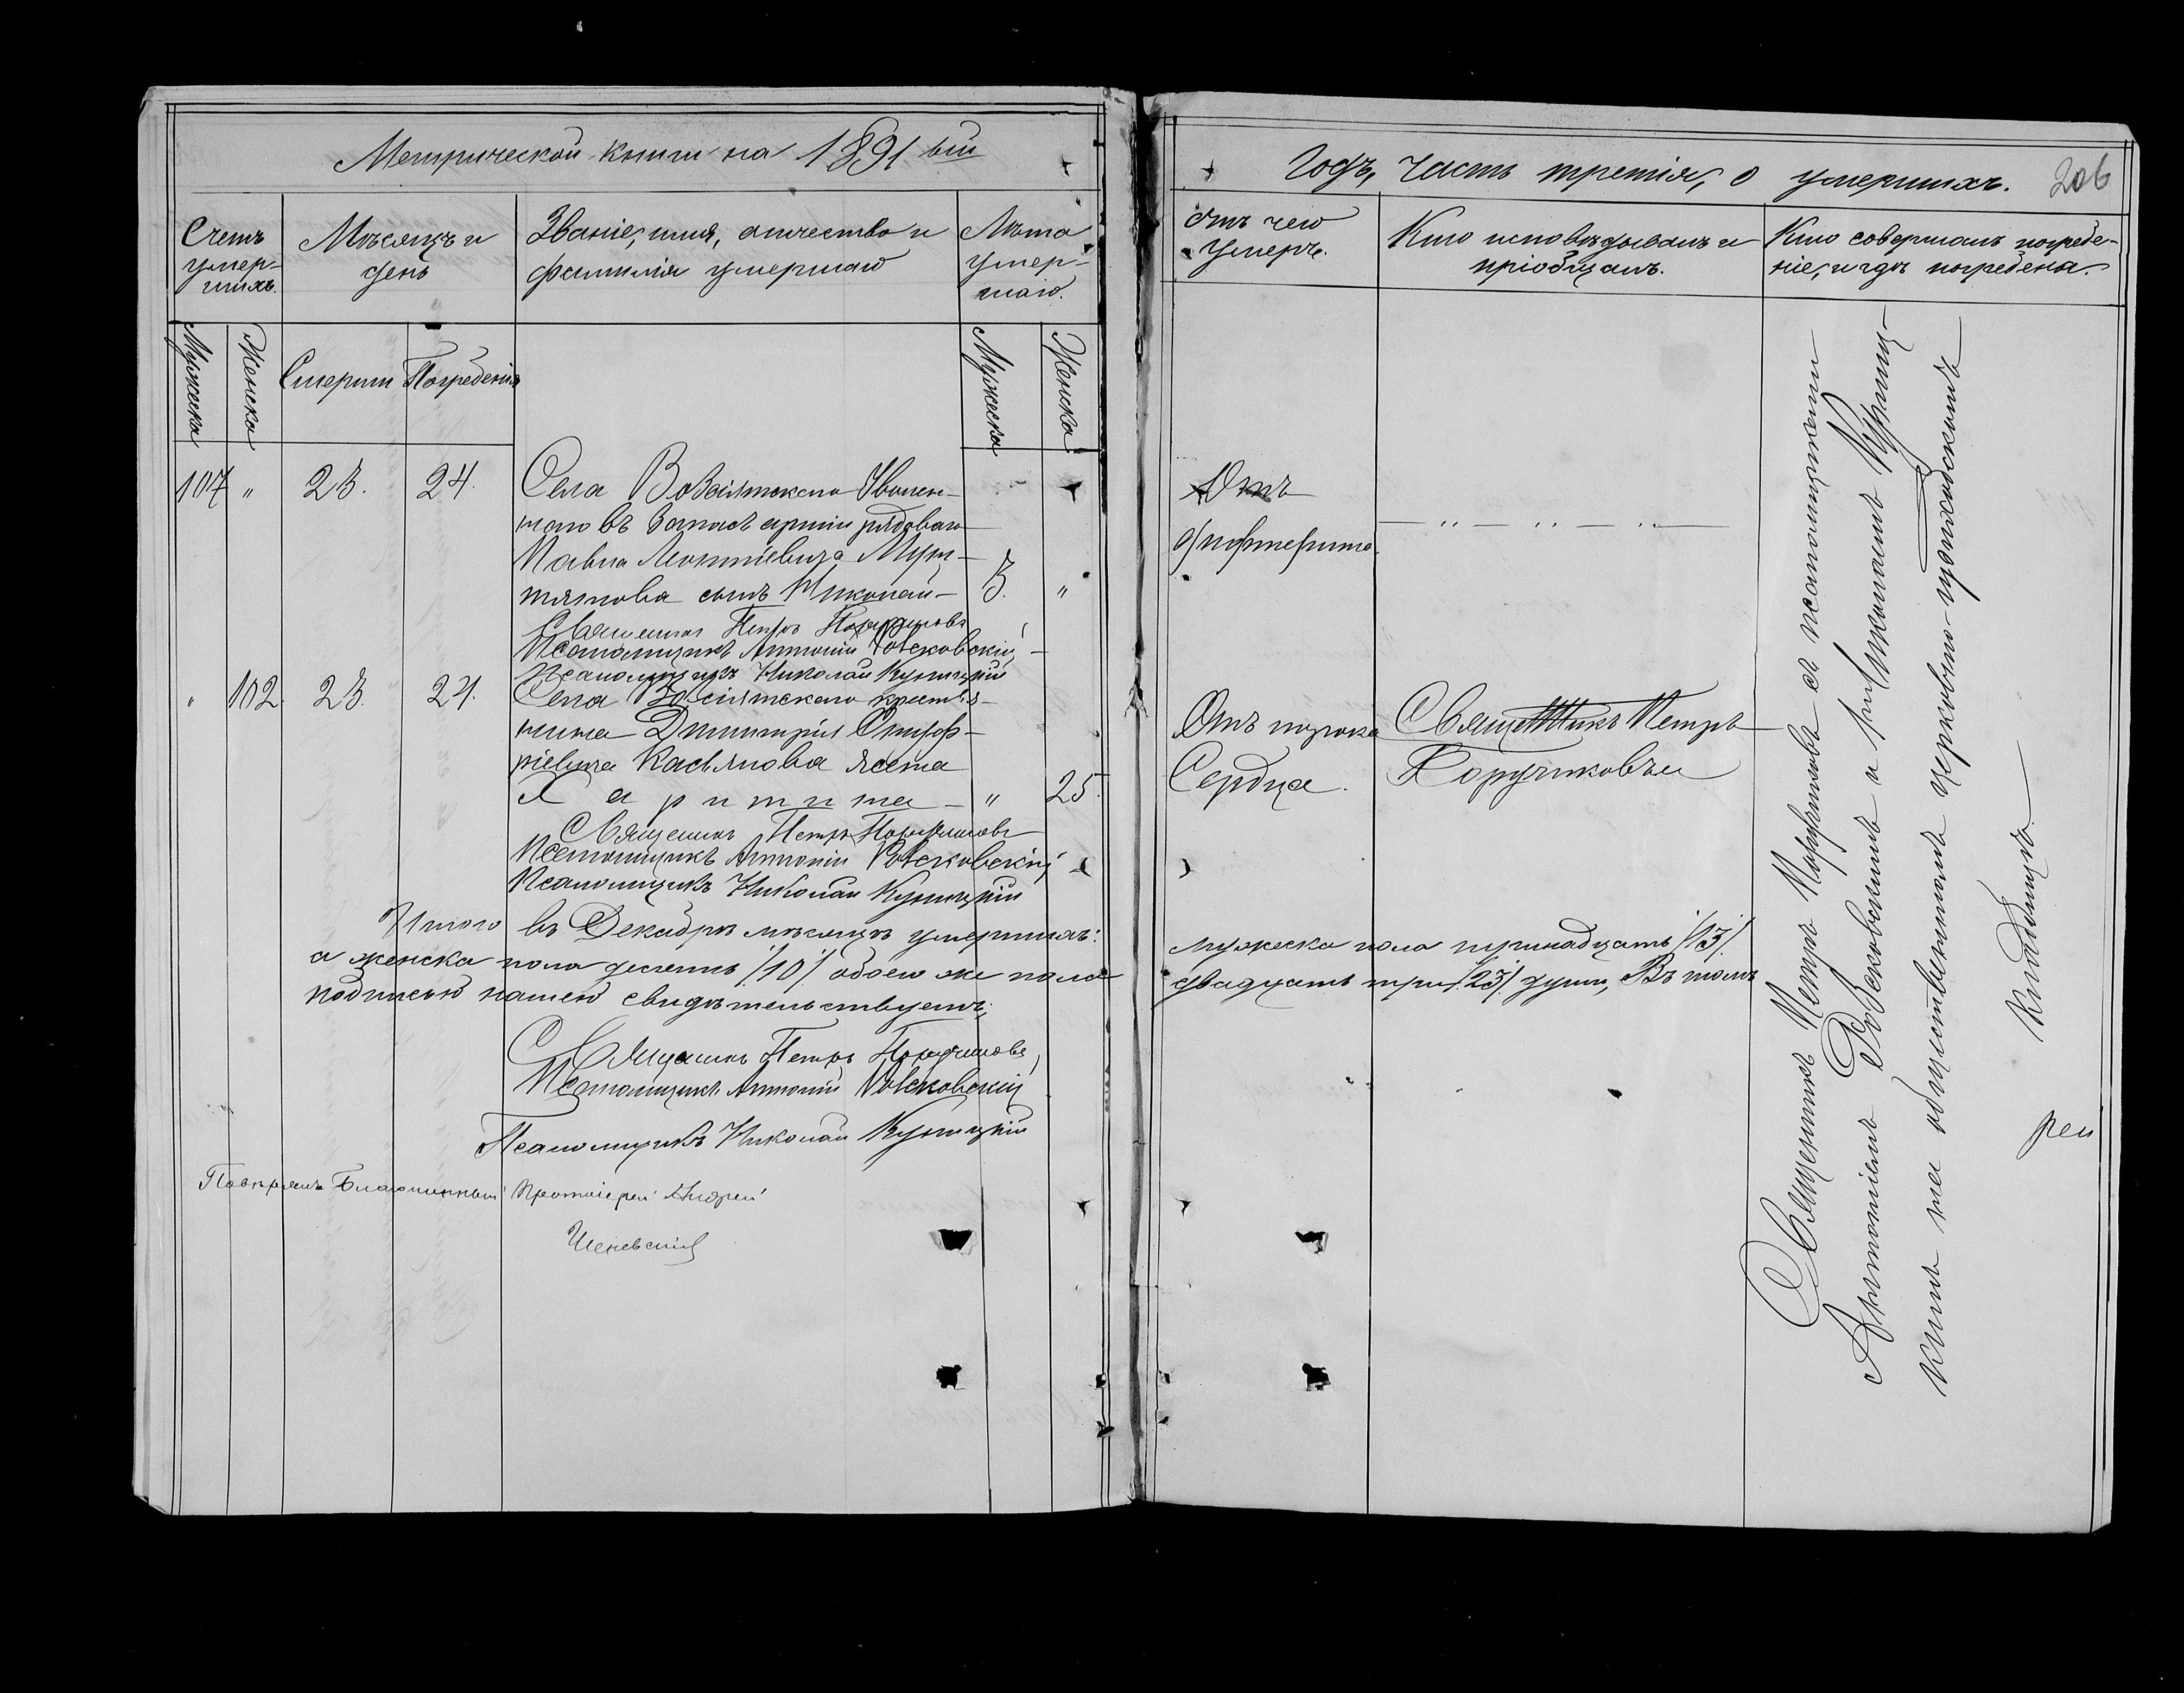 Метрической книги на 1891 ый
Годъ, часть третія, о умершихъ.
206
Счетъ умер-
шихъ.
Мѣсяцъ и
день
Званіе, имя, отчество и
фамилія умершаго
Лѣта
умер-
шаго.
Отъ чего
умеръ.
Кто исповѣдывалъ и
пріобщалъ.
Кто совершалъ погребе-
ніе, и гдѣ погребены.
Мужеска
Женска
Смерти
Погребенія
Мужеска
Женска
107 " 23. 24.
Села
Уволен-
наго въ запасъ арміи рядоваго
Павла
сынъ Николай - 3. "
Отъ
дифтерита.
— " — " — " —
Священникъ Петръ
Псаломщикъ Антоній
Псаломщикъ Николай Куницкій
" 102. 23. 24.
Села крестья-
нина Димитрія Онуф-
ріевича Касьянова жена
Харитина - " 25.
Отъ порока
Сердца.
Священникъ Петръ
Священникъ Петръ
Псаломщикъ Антоній
Псаломщикъ Николай Куницкій
Итого въ Декабрѣ мѣсяцѣ умершихъ:
мужеска пола тринадцать /13/
а женска пола десять /10/ обоего же пола
двадцать три /23/ души, Въ томъ
подписью нашею свидѣтельствуемъ:
Священникъ Петръ
Псаломщикъ Антоній
Псаломщикъ Николай Куницкій
Благочинный Протоіерей Андрей
Священникъ Петръ съ псаломщиками
Антоніемъ и Николаемъ Куниц-
кимъ на общественномъ церковно-приходскомъ
кладбищѣ.